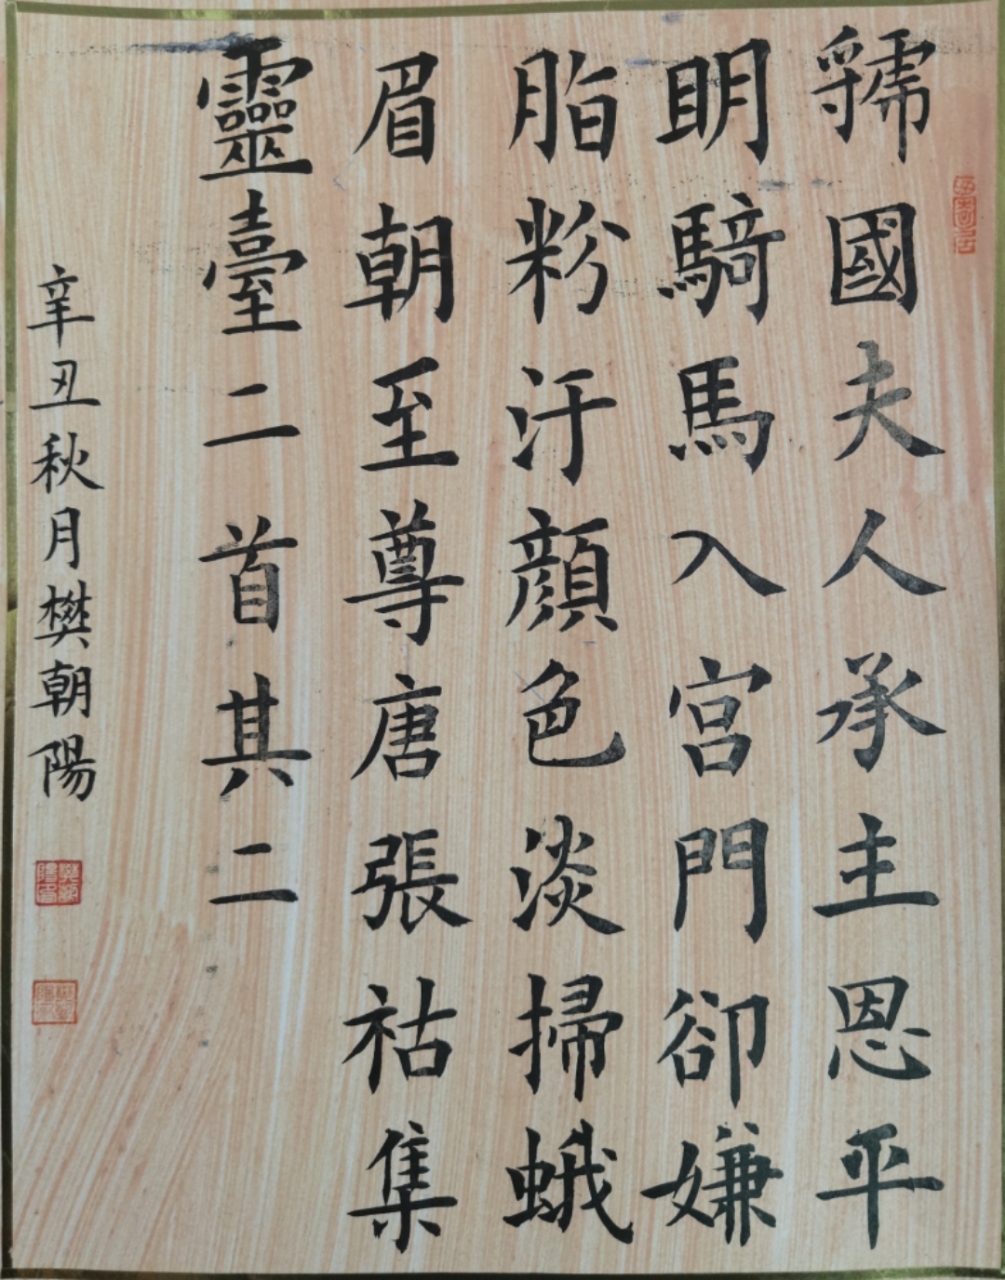 虢國夫人承主恩平
眀騎馬入宮門卻嫌
脂粉汙顔色淡掃蛾
眉朝至尊唐張祜集
靈臺二首其二
辛丑秋月樊朝陽